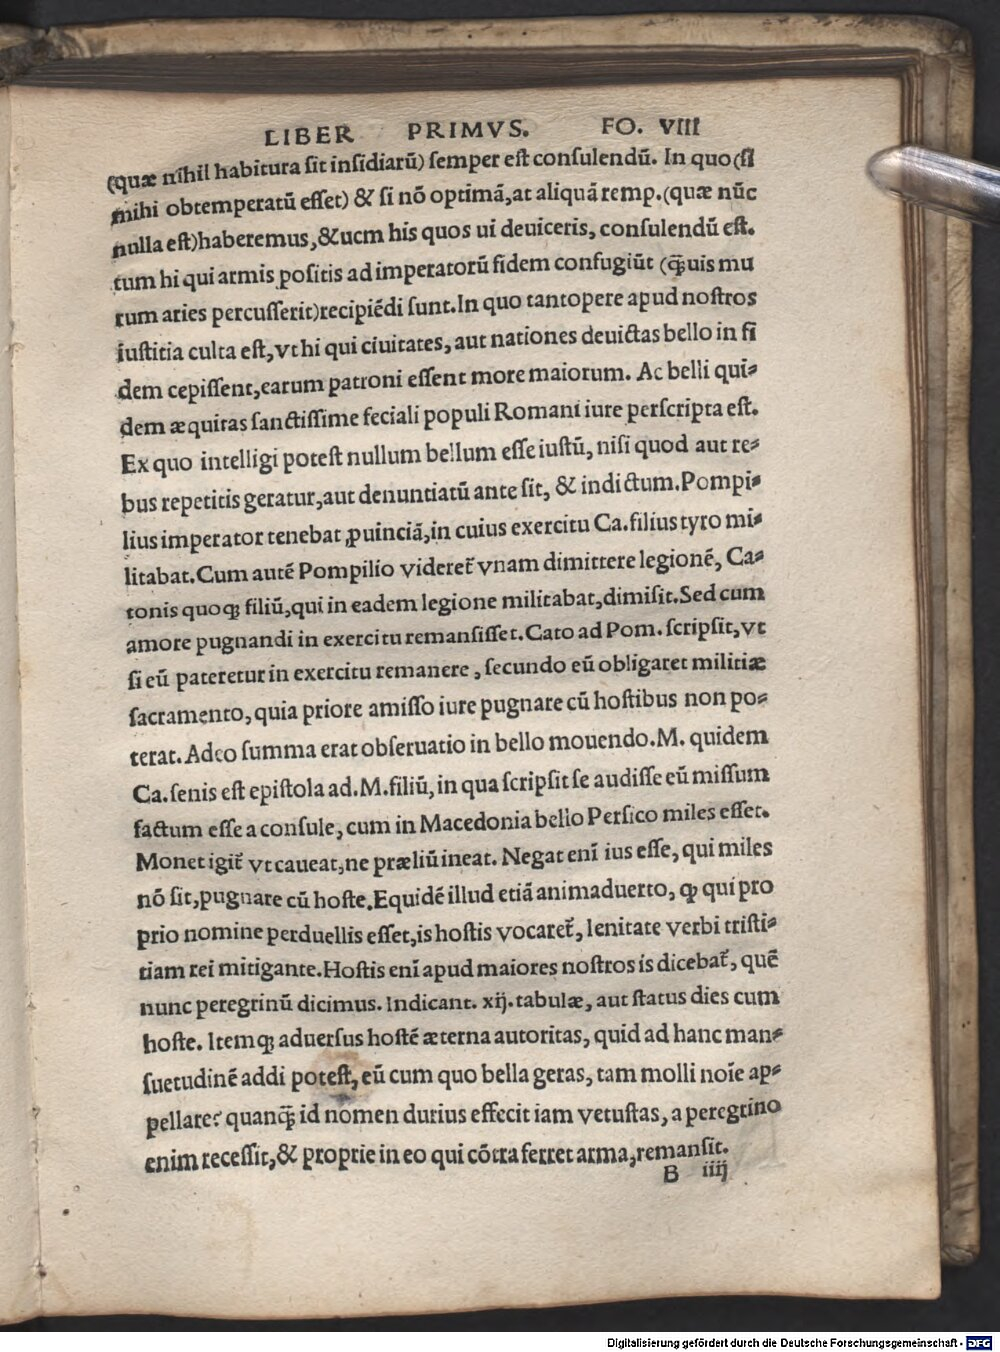 LIBER PRIMVS. FO. VIII
(quæ nihil habitura sit insidiarū) semper est consulendū. In quo (si
mihi obtemperatū esset) & si nō optimā, at aliquā remp. (quæ nūc
nulla est) haberemus, & ucm his quos ui deuiceris, consulendū est.
tum hi qui armis positis ad imperatorū fidem confugiūt (q̄uis mu
rum aries percusserit) recipiēdi sunt. In quo tantopere apud nostros
iustitia culta est, vt hi qui ciuitates, aut nationes deuictas bello in fi
dem cepissent, earum patroni essent more maiorum. Ac belli qui⸗
dem æquitas sanctissime feciali populi Romani iure perscripta est.
Ex quo intelligi potest nullum bellum esse iustū, nisi quod aut re⸗
bus repetitis geratur, aut denuntiatū ante sit, & indictum. Pompi⸗
lius imperator tenebat ꝓuinciā, in cuius exercitu Ca. filius tyro mi⸗
litabat. Cum autē Pompilio videret᷑ vnam dimittere legionē, Ca⸗
tonis quoqꝫ filiū, qui in eadem legione militabat, dimisit. Sed cum
amore pugnandi in exercitu remansisset. Cato ad Pom. scripsit, vt
si eū pateretur in exercitu remanere, secundo eū obligaret militiæ
sacramento, quia priore amisso iure pugnare cū hostibus non po⸗
terat. Adeo summa erat obseruatio in bello mouendo. M. quidem
Ca. senis est epistola ad. M. filiū, in qua scripsit se audisse eū missum
factum esse a consule, cum in Macedonia bello Persico miles esset.
Monet igit᷑ vt caueat, ne præliū ineat. Negat enī ius esse, qui miles
nō sit, pugnare cū hoste. Equidē illud etiā animaduerto, ꝙ qui pro
prio nomine perduellis esset, is hostis vocaret᷑, lenitate verbi tristi⸗
tiam rei mitigante. Hostis enī apud maiores nostros is dicebat᷑, quē
nunc peregrinū dicimus. Indicant. xij. tabulæ, aut status dies cum
hoste. Itemqꝫ aduersus hostē æterna autoritas, quid ad hanc man⸗
suetudinē addi potest, eū cum quo bella geras, tam molli noīe ap⸗
pellare? quanq̄ id nomen durius effecit iam vetustas, a peregrino
enim recessit, & proprie in eo qui cōtra ferret arma, remansit.
B iiij
Digitalisierung gefördert durch die Deutsche Forschungsgemeinschaft - DFG